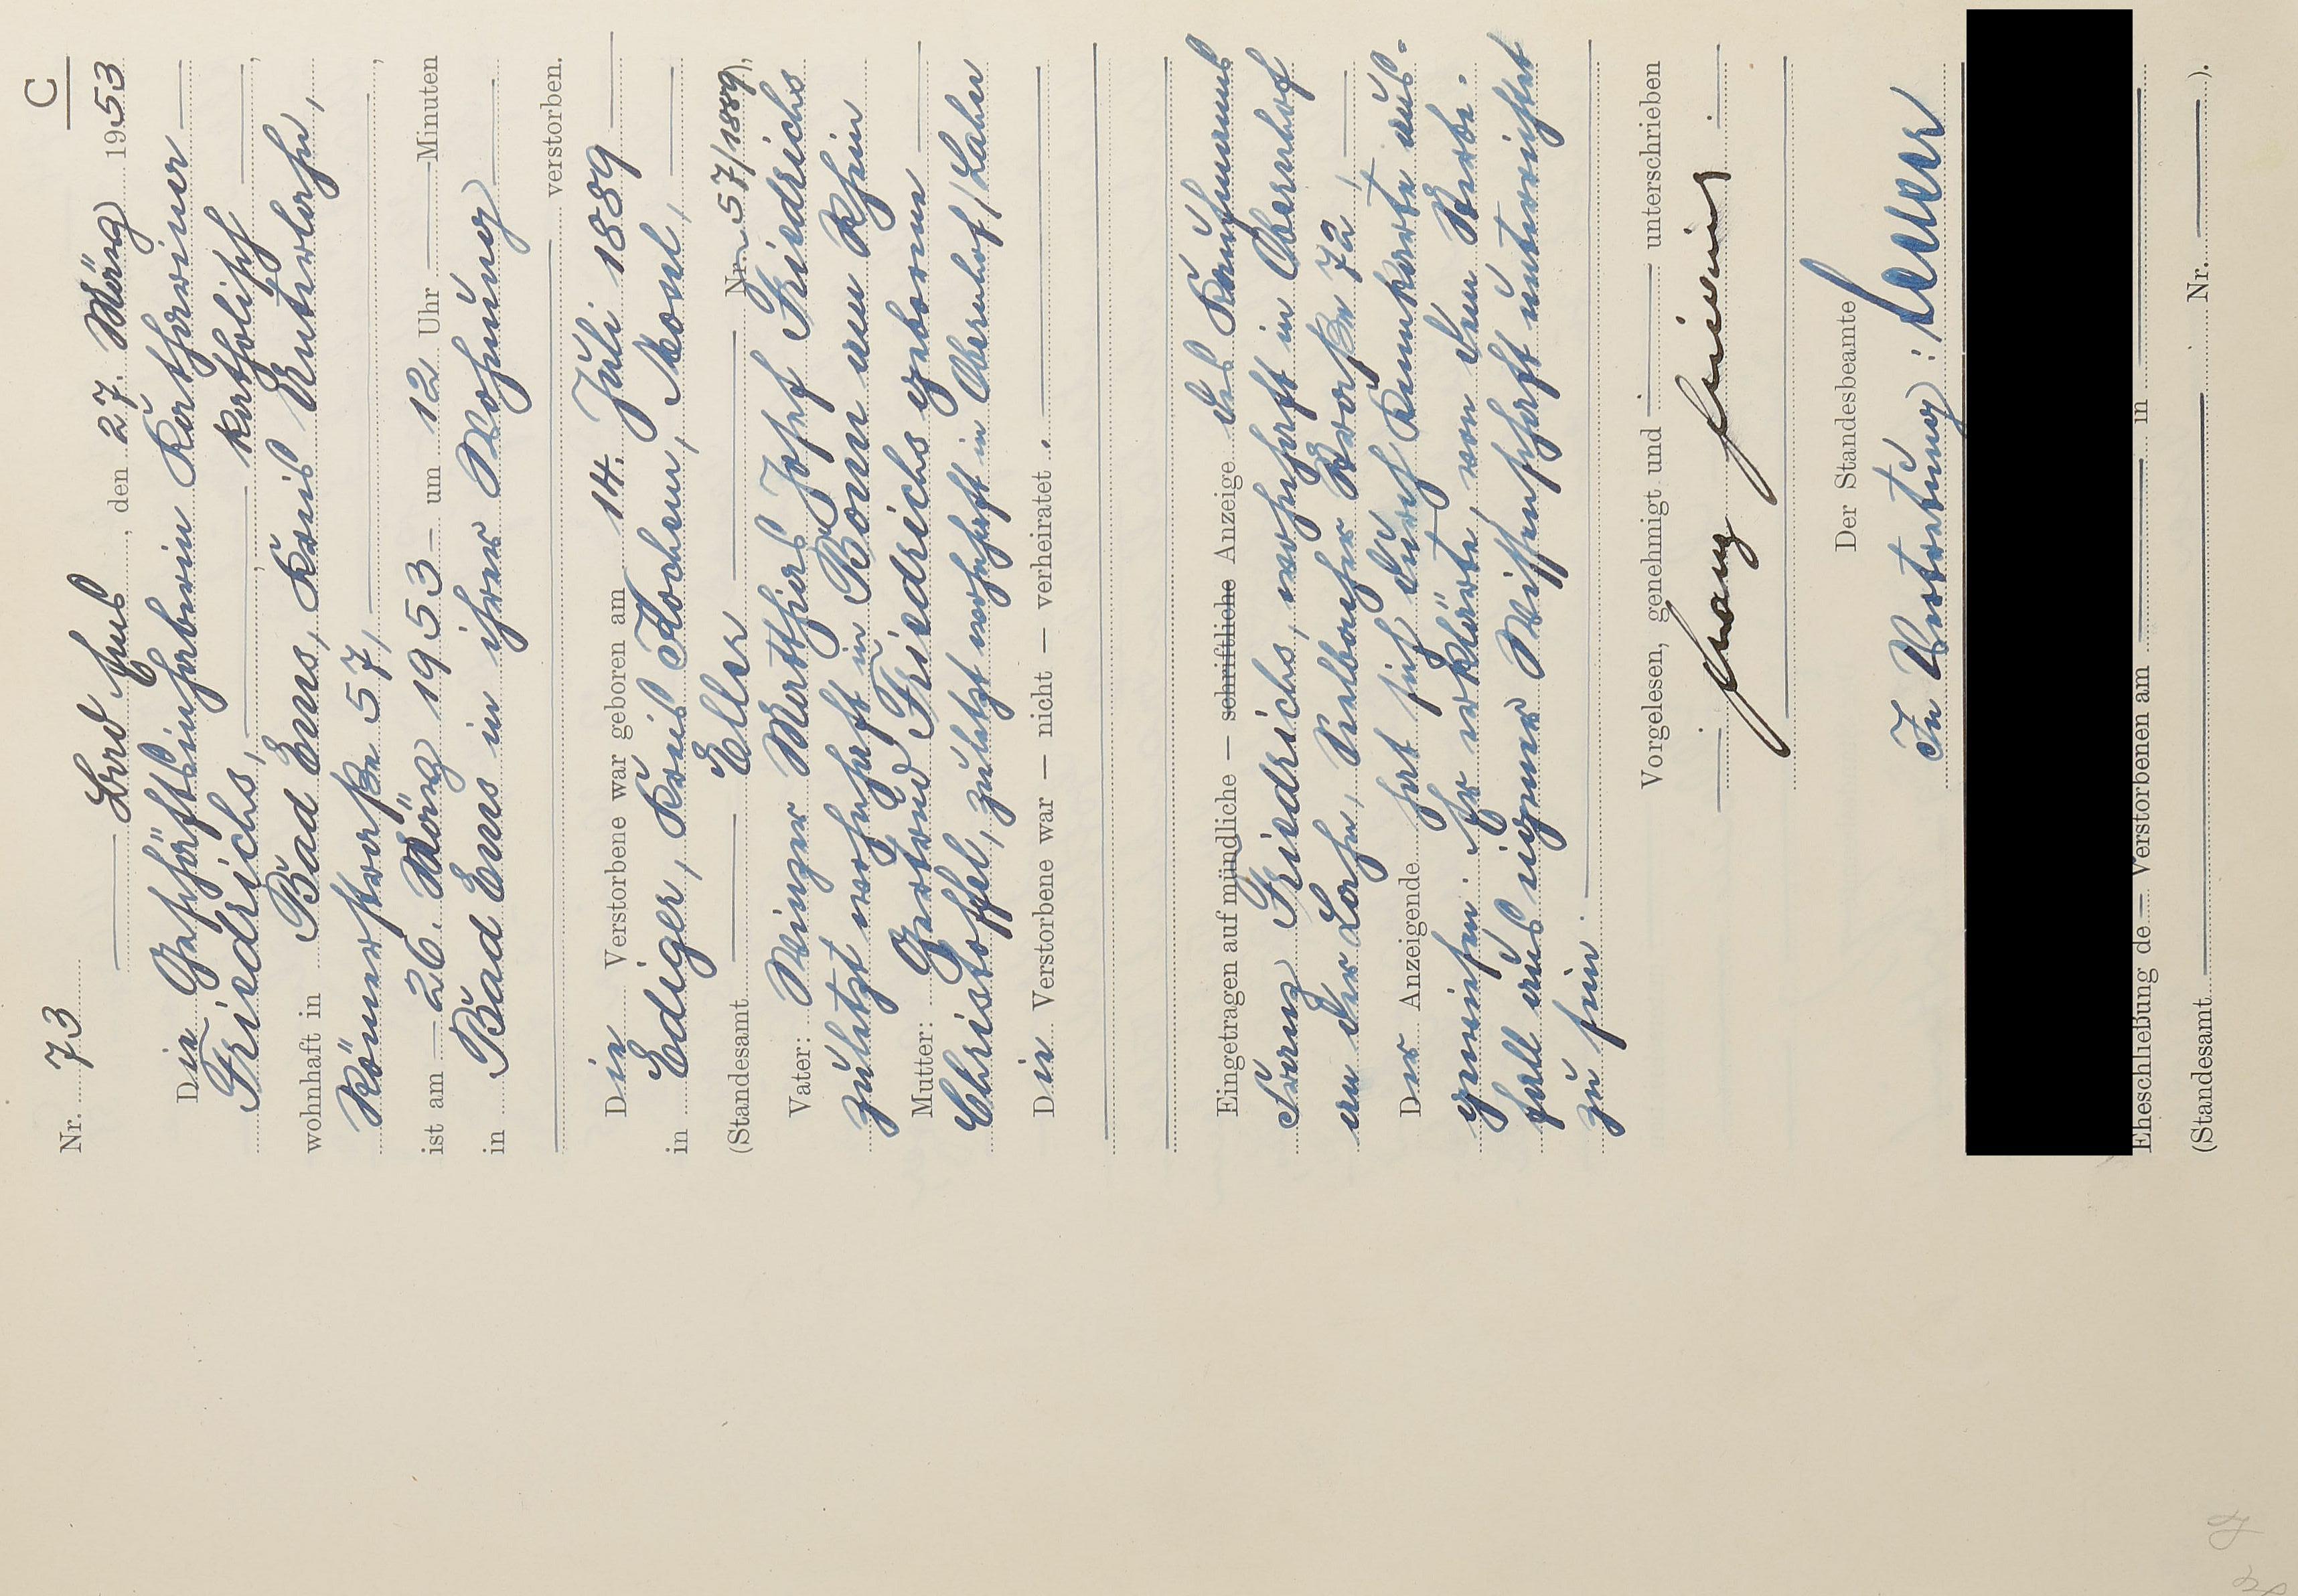 C
Nr. 73
Bad Ems, den 27. März 1953
Die Geschäftsinhaberin Katharina
Friedrichs, katholisch,
wohnhaft in Bad Ems, Kreis Unterlahn,
Römerstraße 57,
ist am 26. März 1953 um 12 Uhr Minuten
in Bad Ems in ihrer Wohnung
verstorben.
Die Verstorbene war geboren am 14. Juli 1889
in Ediger, Kreis Kochem, Mosel,
(Standesamt Eller Nr. 57/1889),
Vater: Winzer Matthias Josef Friedrichs
zuletzt wohnhaft in Bonn am Rhein
Mutter: Gertrud Friedrichs geborene
Christoffel, zuletzt wohnhaft in Obernhof/Lahn
Die Verstorbene war — nicht — verheiratet.
Eingetragen auf mündliche — schriftliche Anzeige des Kaufmanns
Franz Friedrichs, wohnhaft in Obernhof
an der Lahn, Seelbacher Straße 72,
Der Anzeigende hat sich durch Kennkarte aus-
gewiesen. Er erklärte, von dem Sterbe-
fall aus eigener Wissenschaft unterrichtet
zu sein.
Vorgelesen, genehmigt und unterschrieben
Franz
Der Standesbeamte
In Vertretung:
Eheschließung de Verstorbenen am in
(Standesamt Nr. ).